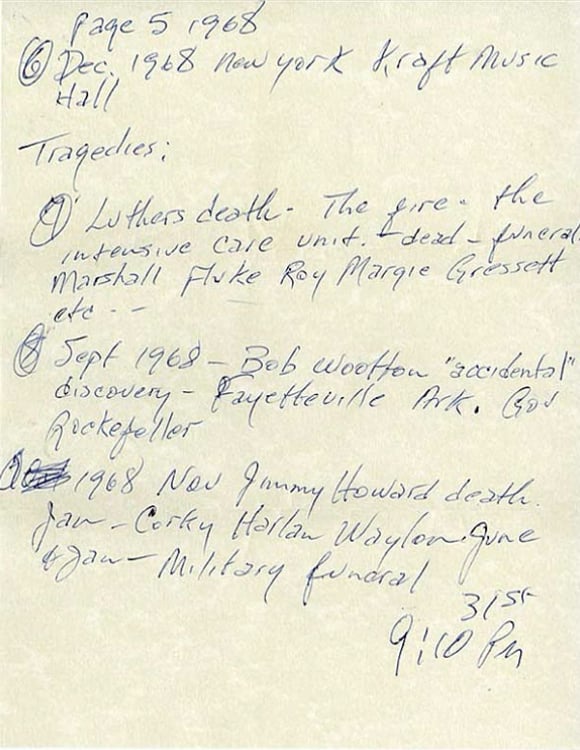 Page 5 1968
⑥ Dec. 1968 New york Kraft Music
Hall
Tragedies:
⑦ Luthers death - The fire - the
intensive care unit. - dead - funeral
Marshall Fluke Roy Margie Gressett
etc - -
⑧ Sept 1968 - Bob Wootton "accidental"
discovery - Fayetteville Ark. Gov
Rockefeller
1968 Nov Jimmy Howard death.
Jan - Corky Harlan Waylon. June
& Jan - Military funeral
31st
9:10 Pm